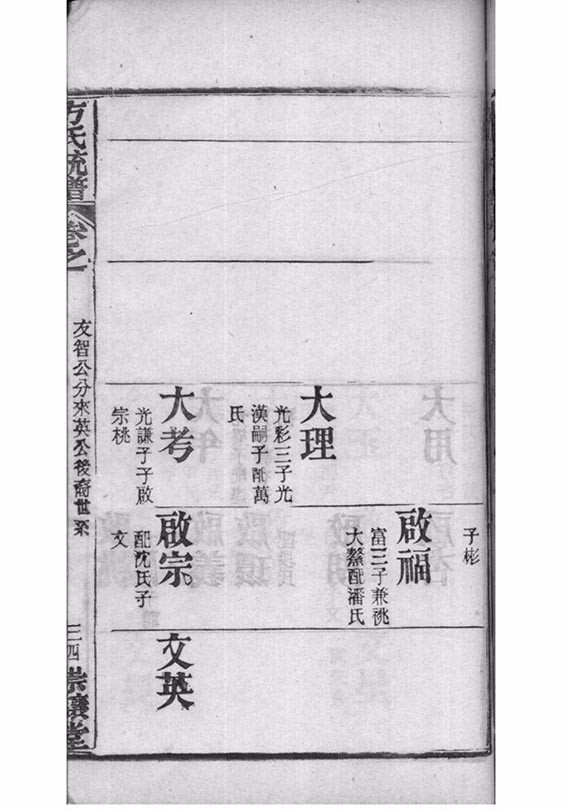 子彬
啟福
富三子兼祧
大鰲配潘氏
大理
光彩三子光
漢嗣子配萬
氏
大考
光謙子子啟
宗桃
啟宗
配沈氏子
文
文英
方氏統譜
卷之
友智公分來英公後裔世系
三四
崇讓堂